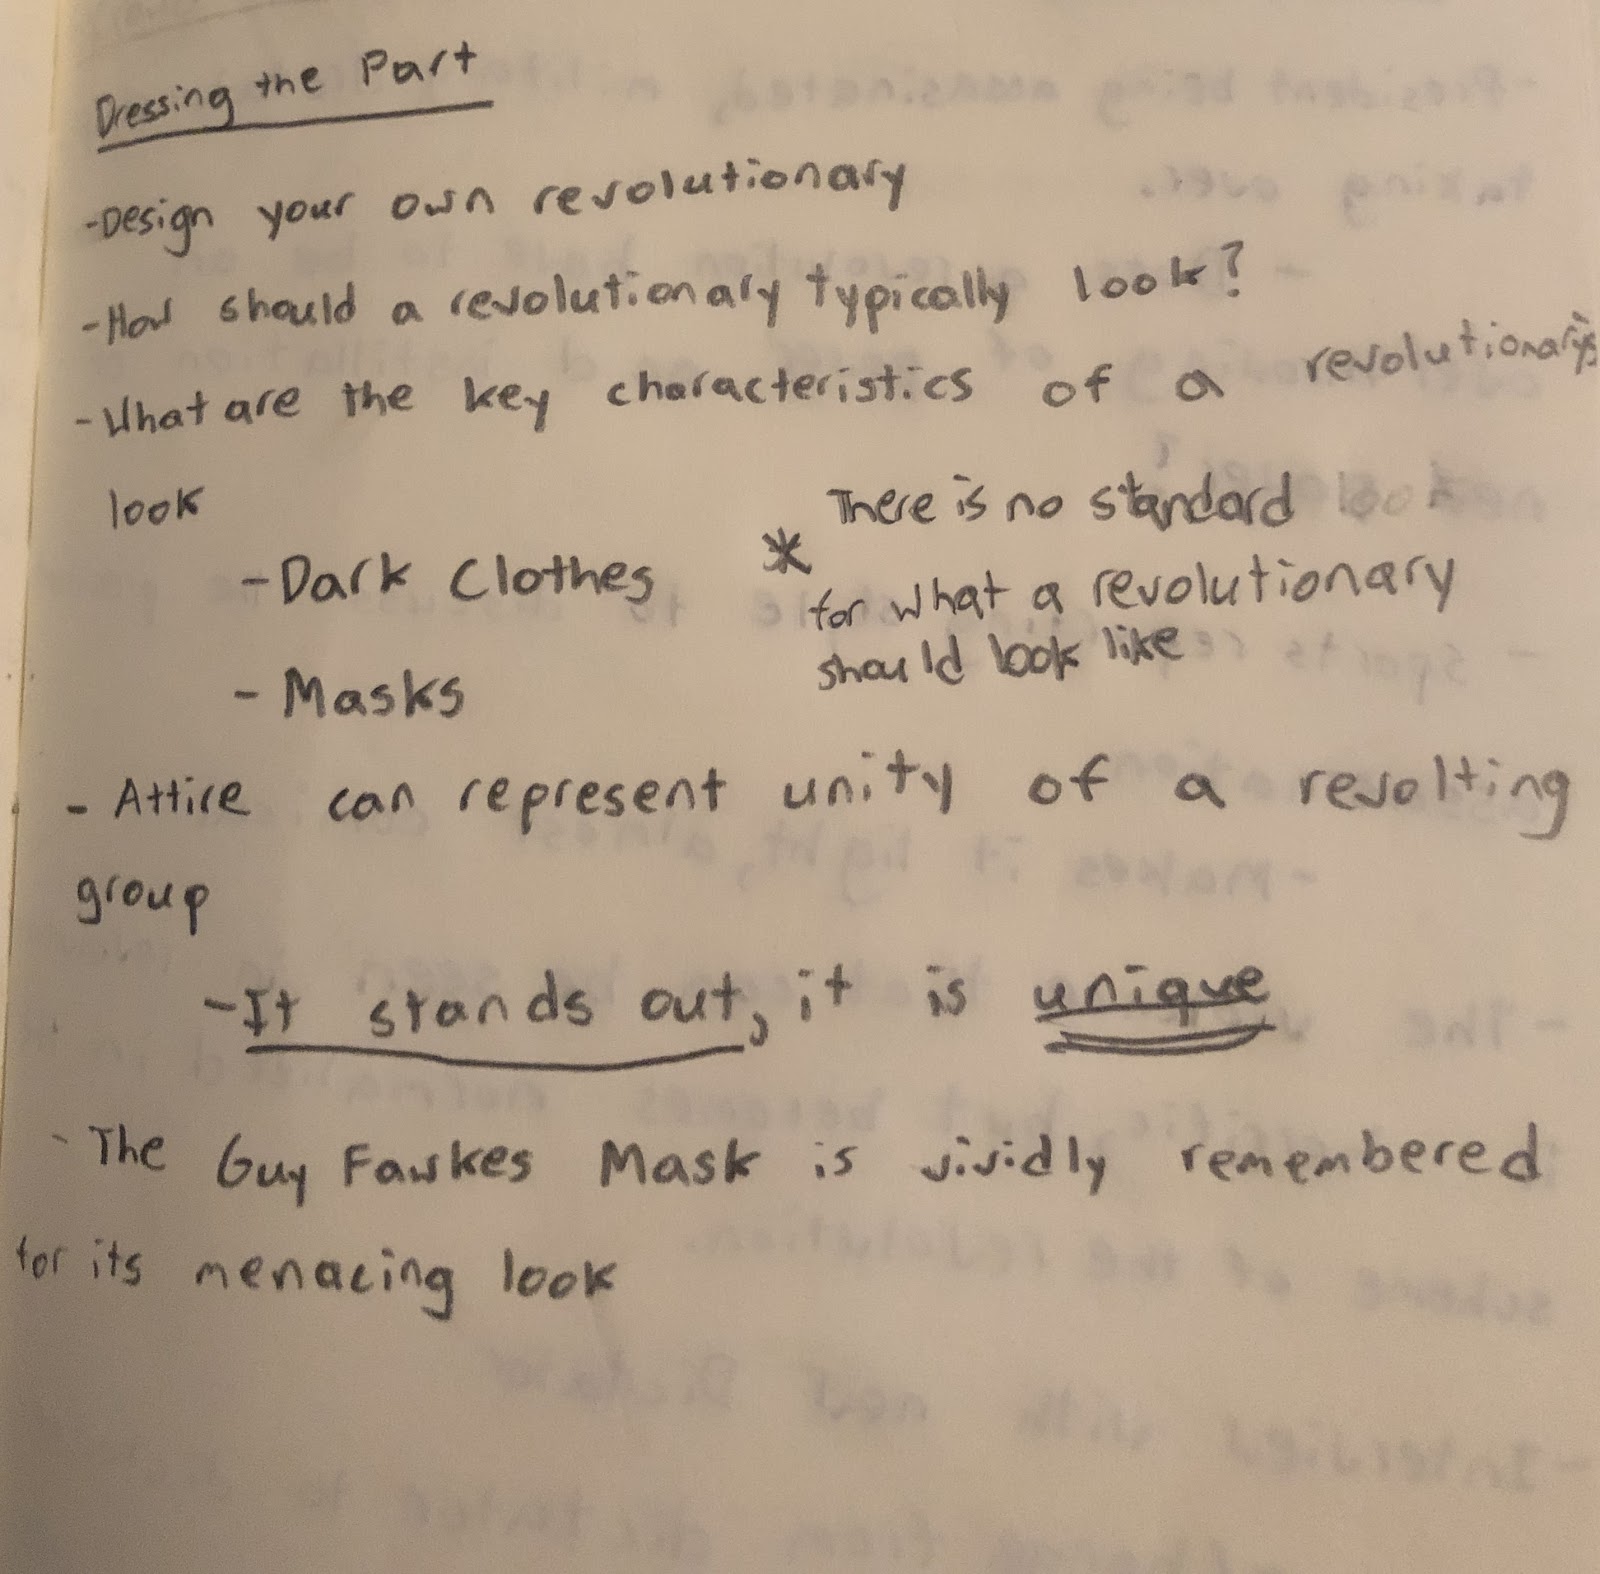 Dressing the Part
-Design your own revolutionary
-How should a revolutionary typically look?
-What are the key characteristics of a revolutionary's
look
-Dark Clothes
-Masks
* There is no standard
for what a revolutionary
should look like
- Attire can represent unity of a revolting
group
-It stands out, it is unique
- The Guy Fawkes Mask is vividly remembered
for its menacing look